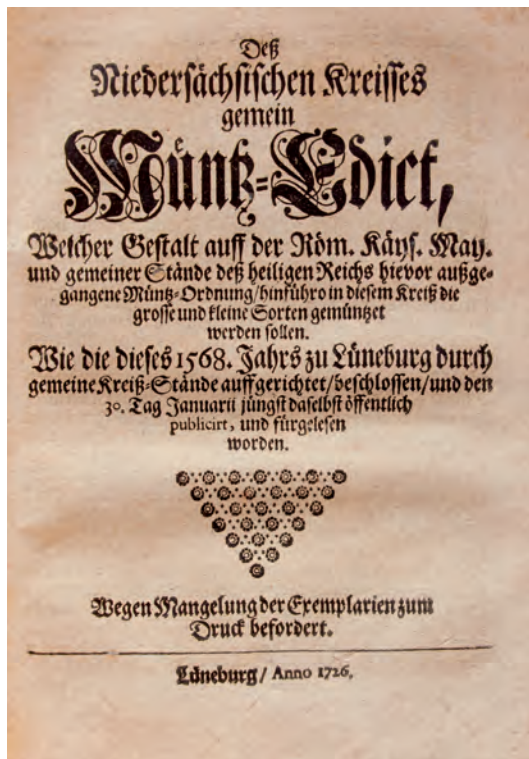 Deß
Niedersächsischen Kreisses
gemein
Müntz-Edict,
Welcher Gestalt auff der Röm. Käys. May.
und gemeiner Stände deß heiligen Reichs hievor außge-
gangene Müntz-Ordnung/hinführo in diesem Kreiß die
grosse und kleine Sorten gemüntzet
werden sollen.
Wie die dieses 1568. Jahrs zu Lüneburg durch
gemeine Kreiß-Stände auffgerichtet/beschlossen/und den
30. Tag Januarii jüngst daselbst öffentlich
publicirt, und fürgelesen
worden.
Wegen Mangelung der Exemplarien zum
Druck befordert.
Lüneburg/ Anno 1726.